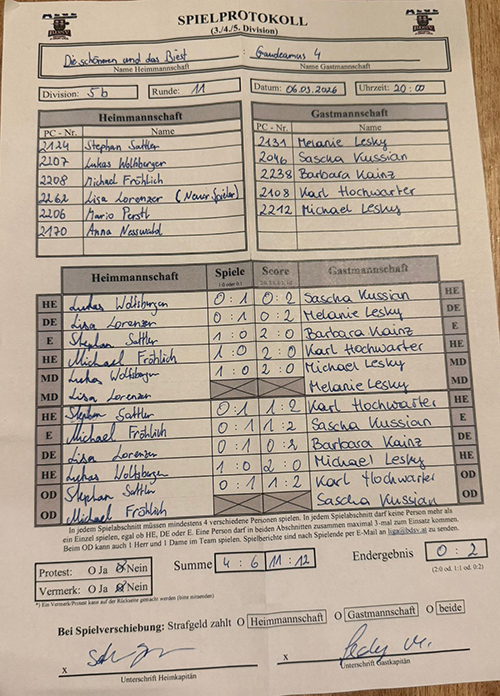 SPIELPROTOKOLL
(3./4./5. Division)
Die schönen und das Biest : Gaudeamus 4
Name Heimmannschaft Name Gastmannschaft
Division: 5b Runde: 11 Datum: 06.03.2026 Uhrzeit: 20:00
Heimmannschaft Gastmannschaft
PC - Nr. Name PC - Nr. Name
2124 Stephan Sattler 2131 Melanie Lesky
2107 Lukas Wolfsberger 2046 Sascha Kussian
2208 Michael Fröhlich 2238 Barbara Kainz
2262 Lisa Lorenzer (Neuer Spieler) 2108 Karl Hochwarter
2206 Mario Perstl 2212 Michael Lesky
2170 Anna Nesswald
Heimmannschaft Spiele Score Gastmannschaft
HE Lukas Wolfsberger 0 : 1 0 : 2 Sascha Kussian HE
DE Lisa Lorenzer 0 : 1 0 : 2 Melanie Lesky DE
E Stephan Sattler 1 : 0 2 : 0 Barbara Kainz E
HE Michael Fröhlich 1 : 0 2 : 0 Karl Hochwarter HE
MD Lukas Wolfsberger 1 : 0 2 : 0 Michael Lesky MD
MD Lisa Lorenzer Melanie Lesky MD
HE Stephan Sattler 0 : 1 1 : 2 Karl Hochwarter HE
E Michael Fröhlich 0 : 1 1 : 2 Sascha Kussian E
DE Lisa Lorenzer 0 : 1 0 : 2 Barbara Kainz DE
HE Lukas Wolfsberger 1 : 0 2 : 0 Michael Lesky HE
OD Stephan Sattler 0 : 1 1 : 2 Karl Hochwarter OD
OD Michael Fröhlich Sascha Kussian OD
In jedem Spielabschnitt müssen mindestens 4 verschiedene Personen spielen. In jedem Spielabschnitt darf keine Person mehr als
ein Einzel spielen, egal ob HE, DE oder E. Eine Person darf in beiden Abschnitten zusammen maximal 3-mal zum Einsatz kommen.
Beim OD kann auch 1 Herr und 1 Dame im Team spielen. Spielberichte sind nach Spielende per E-Mail an liga@bdsv.at zu senden.
Protest: O Ja O Nein Summe 4 : 6 11 : 12 Endergebnis 0 : 2
Vermerk: O Ja O Nein (2:0 od. 1:1 od. 0:2)
*) Ein Vermerk/Protest kann auf der Rückseite gemacht werden (bitte ankreuzen)
Bei Spielverschiebung: Strafgeld zahlt O Heimmannschaft O Gastmannschaft O beide
x x
Unterschrift Heimkapitän Unterschrift Gastkapitän